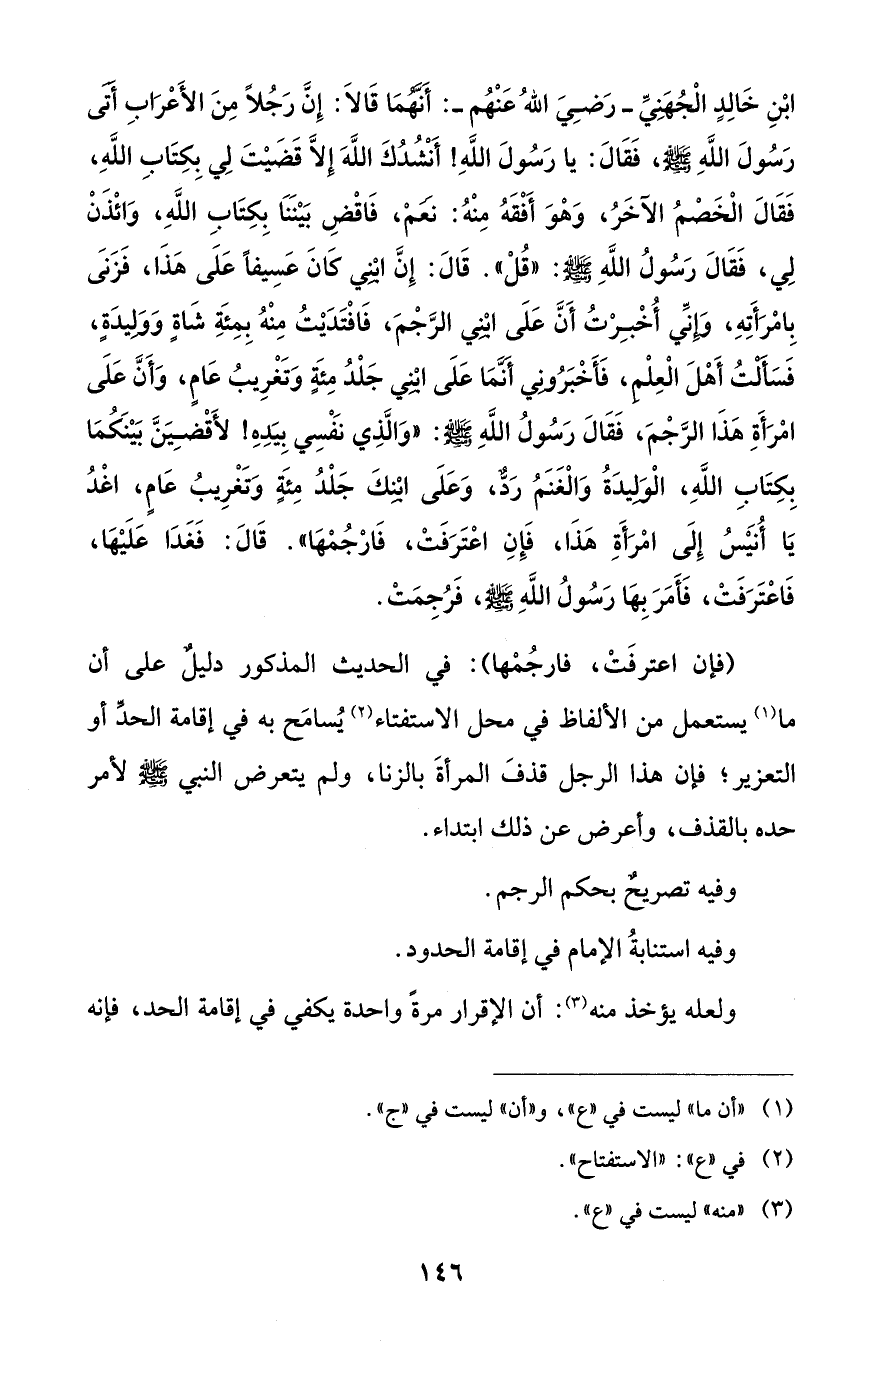 ابْنِ خَالِدٍ الْجُهَنِيِّ ـ رَضِيَ اللهُ عَنْهُم ـ: أَنَّهُمَا قَالاَ: إِنَّ رَجُلاً مِنَ الأَعْرَابِ أَتَى
رَسُولَ اللَّهِ ﷺ، فَقَالَ: يا رَسُولَ اللَّهِ! أَنْشُدُكَ اللَّهَ إِلاَّ قَضَيْتَ لِي بِكِتَابِ اللَّهِ،
فَقَالَ الْخَصْمُ الآخَرُ، وَهْوَ أَفْقَهُ مِنْهُ: نَعَمْ، فَاقْضِ بَيْنَنَا بِكِتَابِ اللَّهِ، وَائْذَنْ
لِي، فَقَالَ رَسُولُ اللَّهِ ﷺ: «قُلْ». قَالَ: إِنَّ ابْنِي كَانَ عَسِيفاً عَلَى هَذَا، فَزَنَى
بِامْرَأَتِهِ، وَإِنِّي أُخْبِرْتُ أَنَّ عَلَى ابْنِي الرَّجْمَ، فَافْتَدَيْتُ مِنْهُ بِمِئَةِ شَاةٍ وَوَلِيدَةٍ،
فَسَأَلْتُ أَهْلَ الْعِلْمِ، فَأَخْبَرُونِي أَنَّمَا عَلَى ابْنِي جَلْدُ مِئَةٍ وَتَغْرِيبُ عَامٍ، وَأَنَّ عَلَى
امْرَأَةِ هَذَا الرَّجْمَ، فَقَالَ رَسُولُ اللَّهِ ﷺ: «وَالَّذِي نَفْسِي بِيَدِهِ! لأَقْضِيَنَّ بَيْنَكُمَا
بِكِتَابِ اللَّهِ، الْوَلِيدَةُ وَالْغَنَمُ رَدٌّ، وَعَلَى ابْنِكَ جَلْدُ مِئَةٍ وَتَغْرِيبُ عَامٍ، اغْدُ
يَا أُنَيْسُ إِلَى امْرَأَةِ هَذَا، فَإِنِ اعْتَرَفَتْ، فَارْجُمْهَا». قَالَ: فَغَدَا عَلَيْهَا،
فَاعْتَرَفَتْ، فَأَمَرَ بِهَا رَسُولُ اللَّهِ ﷺ، فَرُجِمَتْ.
(فإن اعترفَتْ، فارجُمْها): في الحديث المذكور دليلٌ على أن
ما(١) يستعمل من الألفاظ في محل الاستفتاء(٢) يُسامَح به في إقامة الحدِّ أو
التعزير؛ فإن هذا الرجل قذفَ المرأةَ بالزنا، ولم يتعرض النبي ﷺ لأمر
حده بالقذف، وأعرض عن ذلك ابتداء.
وفيه تصريحٌ بحكم الرجم.
وفيه استنابةُ الإمام في إقامة الحدود.
ولعله يؤخذ منه(٣): أن الإقرار مرةً واحدة يكفي في إقامة الحد، فإنه
(١) «أن ما» ليست في «ع»، و«أن» ليست في «ج».
(٢) في «ع»: «الاستفتاح».
(٣) «منه» ليست في «ع».
١٤٦